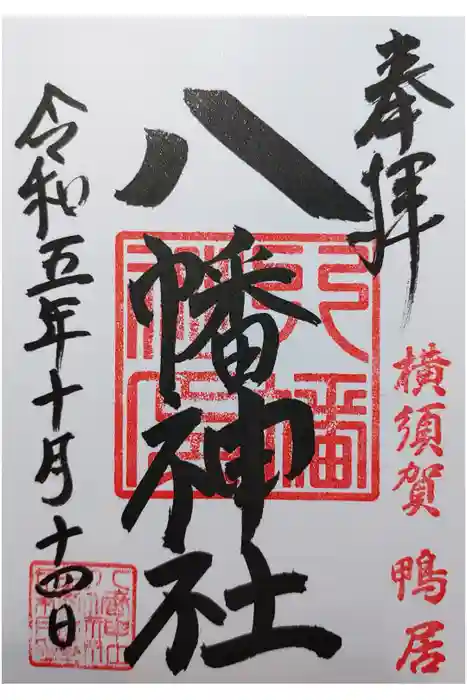 奉拝
横須賀 鴨居
八幡神社
令和五年十月十四日